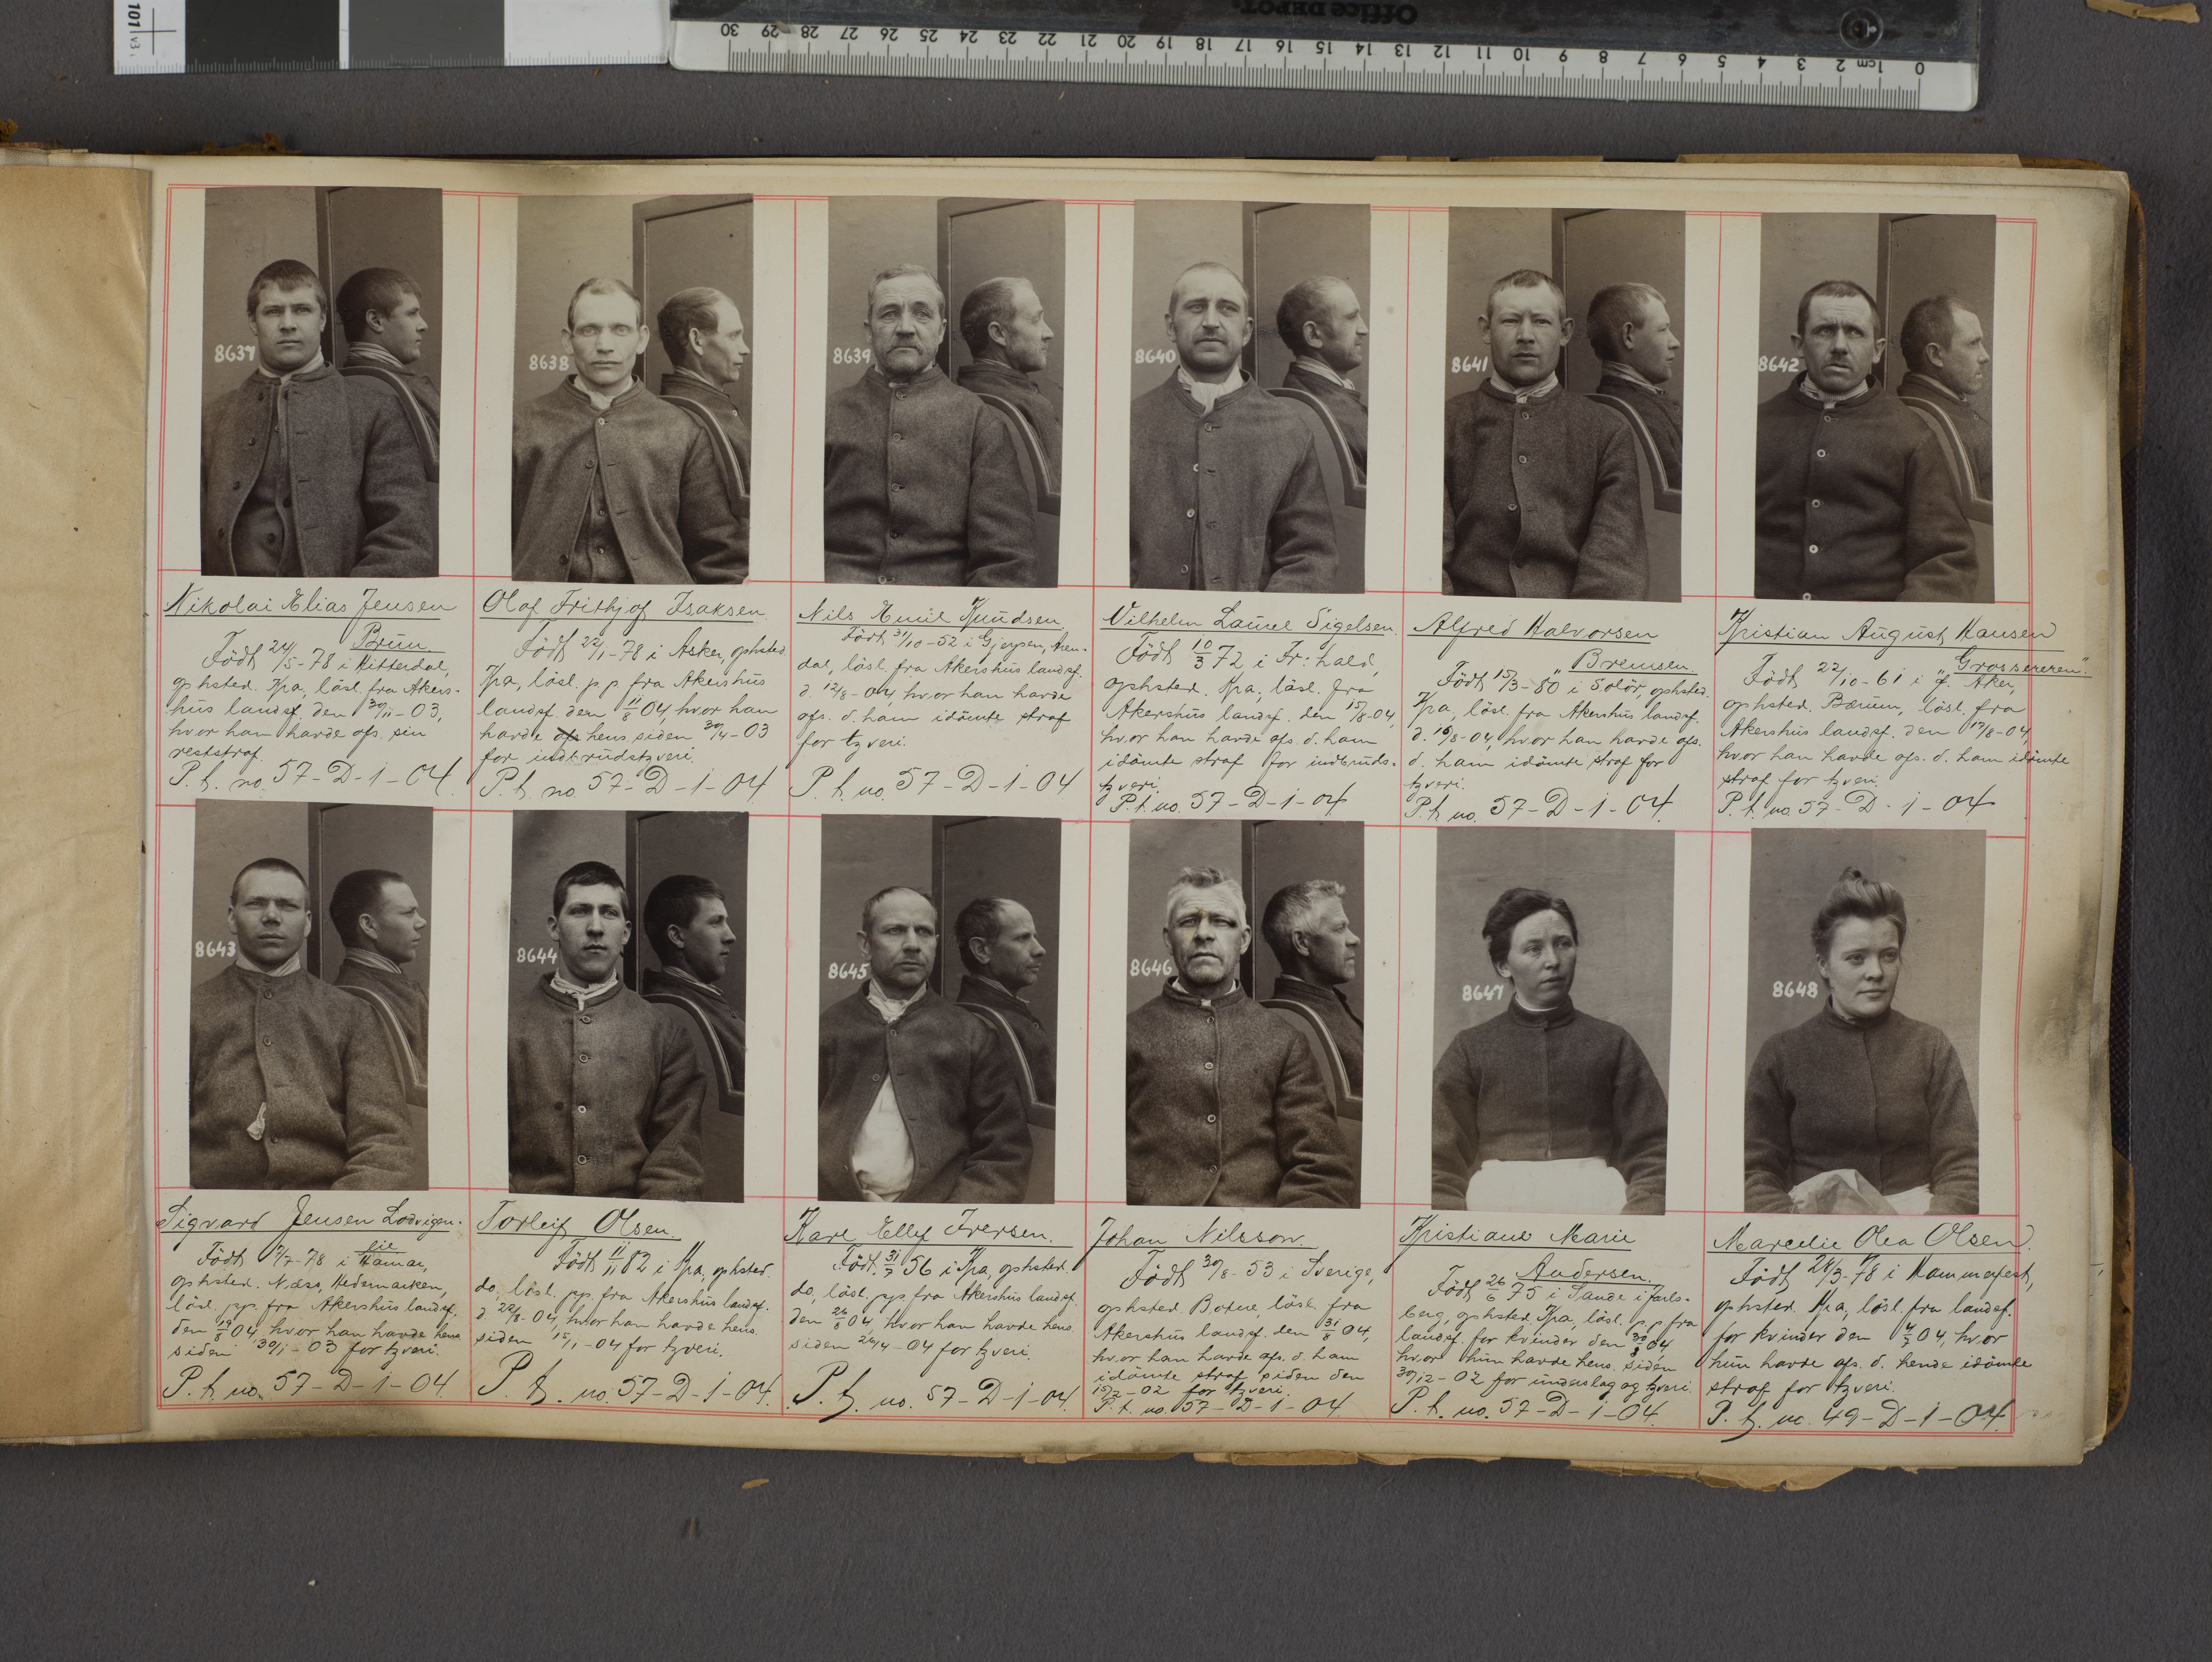 101 v3
Office DEPOT.
30 29 28 27 26 25 24 23 22 21 20 19 18 17 16 15 14 13 12 11 10 9 8 7 6 5 4 3 2 1cm 0
8637
8638
8639
8640
8641
8642
Nikolai Elias Jensen
Brun
Födt 24/5-78 i Hitterdal,
ophsted. Kra, lösl. fra Akers-
hus landsf. den 30/11-03,
hvor han havde afs. sin
reststraf.
P. t. no. 57-D-1-04.
Olaf Frithjof Isaksen
Födt 22/1-78 i Asker, ophsted
Kra, lösl. p.p. fra Akershus
landsf. den 11/8 04, hvor han
havde afs hens. siden 30/4-03
for indbrudstyveri.
P. t. no 57-D-1-04
Nils Emil Knudsen
Födt 31/10-52 i Gjerpen, Aren-
dal, lösl. fra Akershus landsf.
d. 12/8-04, hvor han havde
afs. d. ham idömte straf
for tyveri.
P. t. no. 57-D-1-04
Vilhelm Laurel Sigelsen.
Födt 10/3 72 i Fr:hald,
ophsted. Kra, lösl. fra
Akershus landsf. den 15/8-04,
hvor han havde afs. d. ham
idömte straf for indbruds-
tyveri.
P. t. no. 57-D-1-04
Alfred Halvorsen
"Bremsen.
Födt 15/3-80 i Solör, ophsted.
Kra, lösl. fra Akershus landsf.
d. 16/8-04, hvor han havde afs.
d. ham idömte straf for
tyveri.
P. t. no. 57-D-1-04.
Kristian August Hansen
"Grossereren".
Födt 22/10-61 i V. Aker,
ophsted. Bærum, lösl. fra
Akershus landsf. den 17/8-04
hvor han havde afs. d. ham idömte
straf for tyveri.
P. t. no. 57-D-1-04
8643
8644
8645
8646
8647
8648
Sigvard Jensen Lodvigen.
lie
Födt 9/7-78 i Hamar,
ophsted. Næs, Hedemarken,
lösl. pp. fra Akershus landsf.
den 19/8 04, hvor han havde hens
siden 30/1-03 for tyveri.
P. t. no. 57-D-1-04.
Torleif Olsen.
Födt 11/11 82 i Kra, ophsted.
do, lösl. pp. fra Akershus landsf.
d. 22/8-04, hvor han havde hens.
siden 15/1-04 for tyveri.
P. t. no. 57-D-1-04.
Karl Ellef Iversen.
Födt 31/7 56 i Kra, ophsted.
do, lösl. pp. fra Akershus landsf.
den 26/8 04, hvor han havde hens.
siden 26/4-04 for tyveri.
P. t. no. 57-D-1-04.
Johan Nilsson.
Födt 30/8-53 i Sverige,
ophsted. Botne, lösl. fra
Akershus landsf. den 31/8 04,
hvor han havde afs. d. ham
idömte straf siden den
-02 for tyveri.
P. t. no. 57-D-1-04.
Kristiane Marie
Andersen.
Födt 26/6 75 i Sande i Jarls-
berg, ophsted. Kra, lösl. p.p fra
landsf. for kvinder den 30/8 04
hvor hun havde hens. siden
30/12-02 for underslag og tyveri.
P. t. no. 57-D-1-04.
Marcelie Olea Olsen.
Födt 28/3-78 i Hammerfest,
ophsted. Kra, lösl. fra landsf.
for kvinder den 04, hvor
hun havde afs. d. hende idömte
straf for tyveri.
P. t. no. 49-D-1-04.